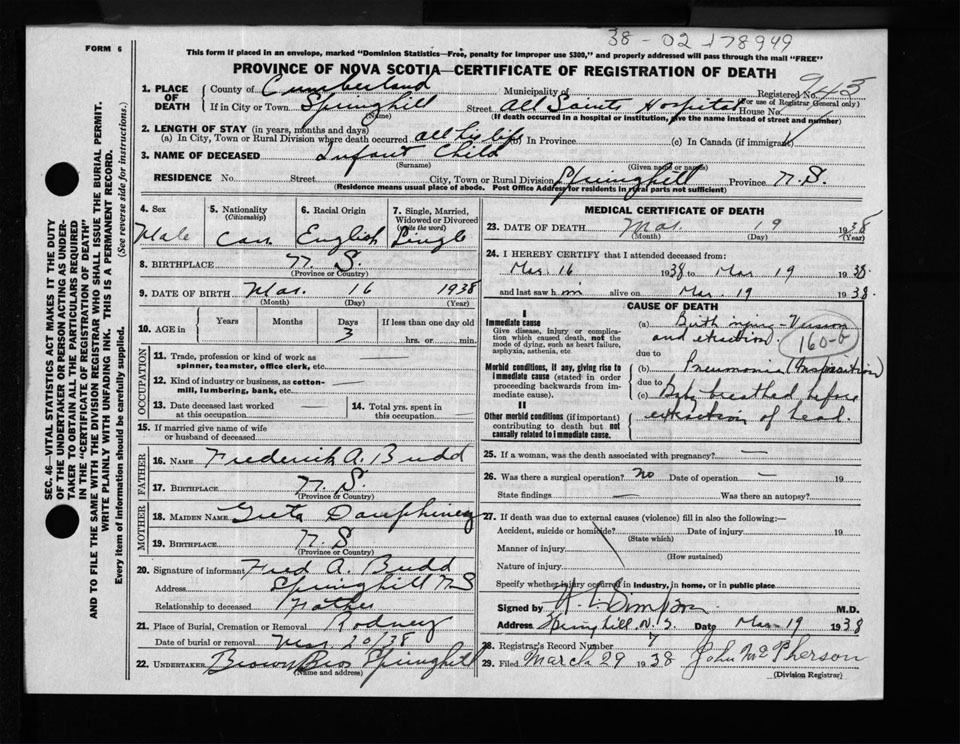 38-02 178949
FORM 6
This form if placed in an envelope, marked "Dominion Statistics—Free, penalty for improper use $300," and properly addressed will pass through the mail "FREE"
PROVINCE OF NOVA SCOTIA—CERTIFICATE OF REGISTRATION OF DEATH
Registered No. 943
(For use of Registrar General only)
1. PLACE OF DEATH
County of Cumberland Municipality of
If in City or Town Springhill Street All Saints Hospital House No.
(Name) (If death occurred in a hospital or institution, give the name instead of street and number)
2. LENGTH OF STAY (in years, months and days)
(a) In City, Town or Rural Division where death occurred all his life (b) In Province (c) In Canada (if immigrant)
3. NAME OF DECEASED Infant Child
(Surname) (Given name or names)
RESIDENCE No. Street City, Town or Rural Division Springhill Province N.S.
(Residence means usual place of abode. Post Office Address for residents in rural parts not sufficient)
4. Sex Male
5. Nationality (Citizenship) Can
6. Racial Origin English
7. Single, Married, Widowed or Divorced (write the word) Single
8. BIRTHPLACE N.S.
(Province or Country)
9. DATE OF BIRTH Mar. 16 1938
(Month) (Day) (Year)
10. AGE in Years Months Days 3 If less than one day old hrs. or min.
OCCUPATION
11. Trade, profession or kind of work as spinner, teamster, office clerk, etc. —
12. Kind of industry or business, as cotton-mill, lumbering, bank, etc. —
13. Date deceased last worked at this occupation —
14. Total yrs. spent in this occupation —
15. If married give name of wife or husband of deceased
FATHER
16. NAME Frederick A. Budd
17. BIRTHPLACE N.S.
(Province or Country)
MOTHER
18. MAIDEN NAME Greta Dauphiney
19. BIRTHPLACE N.S.
(Province or Country)
20. Signature of informant Fred A. Budd
Address Springhill N S
Relationship to deceased Father
21. Place of Burial, Cremation or Removal Rodney
Date of burial or removal Mar 20/38
22. UNDERTAKER Brown Bros Springhill
(Name and address)
MEDICAL CERTIFICATE OF DEATH
23. DATE OF DEATH Mar. 19 1938
(Month) (Day) (Year)
24. I HEREBY CERTIFY that I attended deceased from:
Mar. 16 1938 to Mar 19 1938.
and last saw him alive on Mar. 19 1938.
CAUSE OF DEATH
I
Immediate cause
Give disease, injury or complication which caused death, not the mode of dying, such as heart failure, asphyxia, asthenia, etc
(a) Birth injury - Version and extraction. 160-b
due to
Morbid conditions, if any, giving rise to immediate cause (stated in order proceeding backwards from immediate cause).
(b) Pneumonia
due to
(c) Baby breathed before extraction of head.
II
Other morbid conditions (if important) contributing to death but not causally related to immediate cause.
25. If a woman, was the death associated with pregnancy? —
26. Was there a surgical operation? No Date of operation — 19
State findings — Was there an autopsy?
27. If death was due to external causes (violence) fill in also the following:—
Accident, suicide or homicide? Date of injury 19
(State which)
Manner of injury
(How sustained)
Nature of injury
Specify whether injury occurred in industry, in home, or in public place
Signed by Simpson M.D.
Address Springhill. N.S. Date Mar 19 1938
28. Registrar's Record Number 7
29. Filed March 29 1938 John McPherson
(Division Registrar)
SEC. 46—VITAL STATISTICS ACT MAKES IT THE DUTY
OF THE UNDERTAKER OR PERSON ACTING AS UNDER-
TAKER TO OBTAIN ALL THE PARTICULARS REQUIRED
IN THE "CERTIFICATE OF REGISTRATION OF DEATH"
AND TO FILE THE SAME WITH THE DIVISION REGISTRAR WHO SHALL ISSUE THE BURIAL PERMIT.
WRITE PLAINLY WITH UNFADING INK. THIS IS A PERMANENT RECORD.
Every item of information should be carefully supplied.
(See reverse side for instructions.)